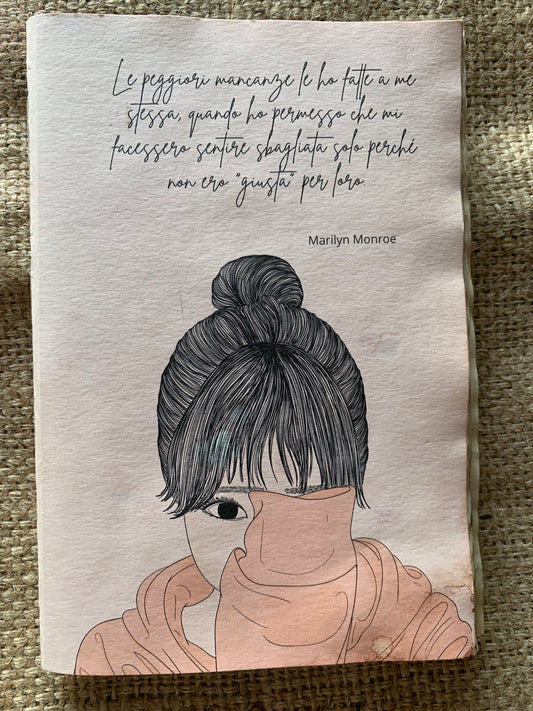 Le peggiori mancanze le ho fatte a me
stessa, quando ho permesso che mi
facessero sentire sbagliata solo perché
non ero "giusta" per loro.
Marilyn Monroe